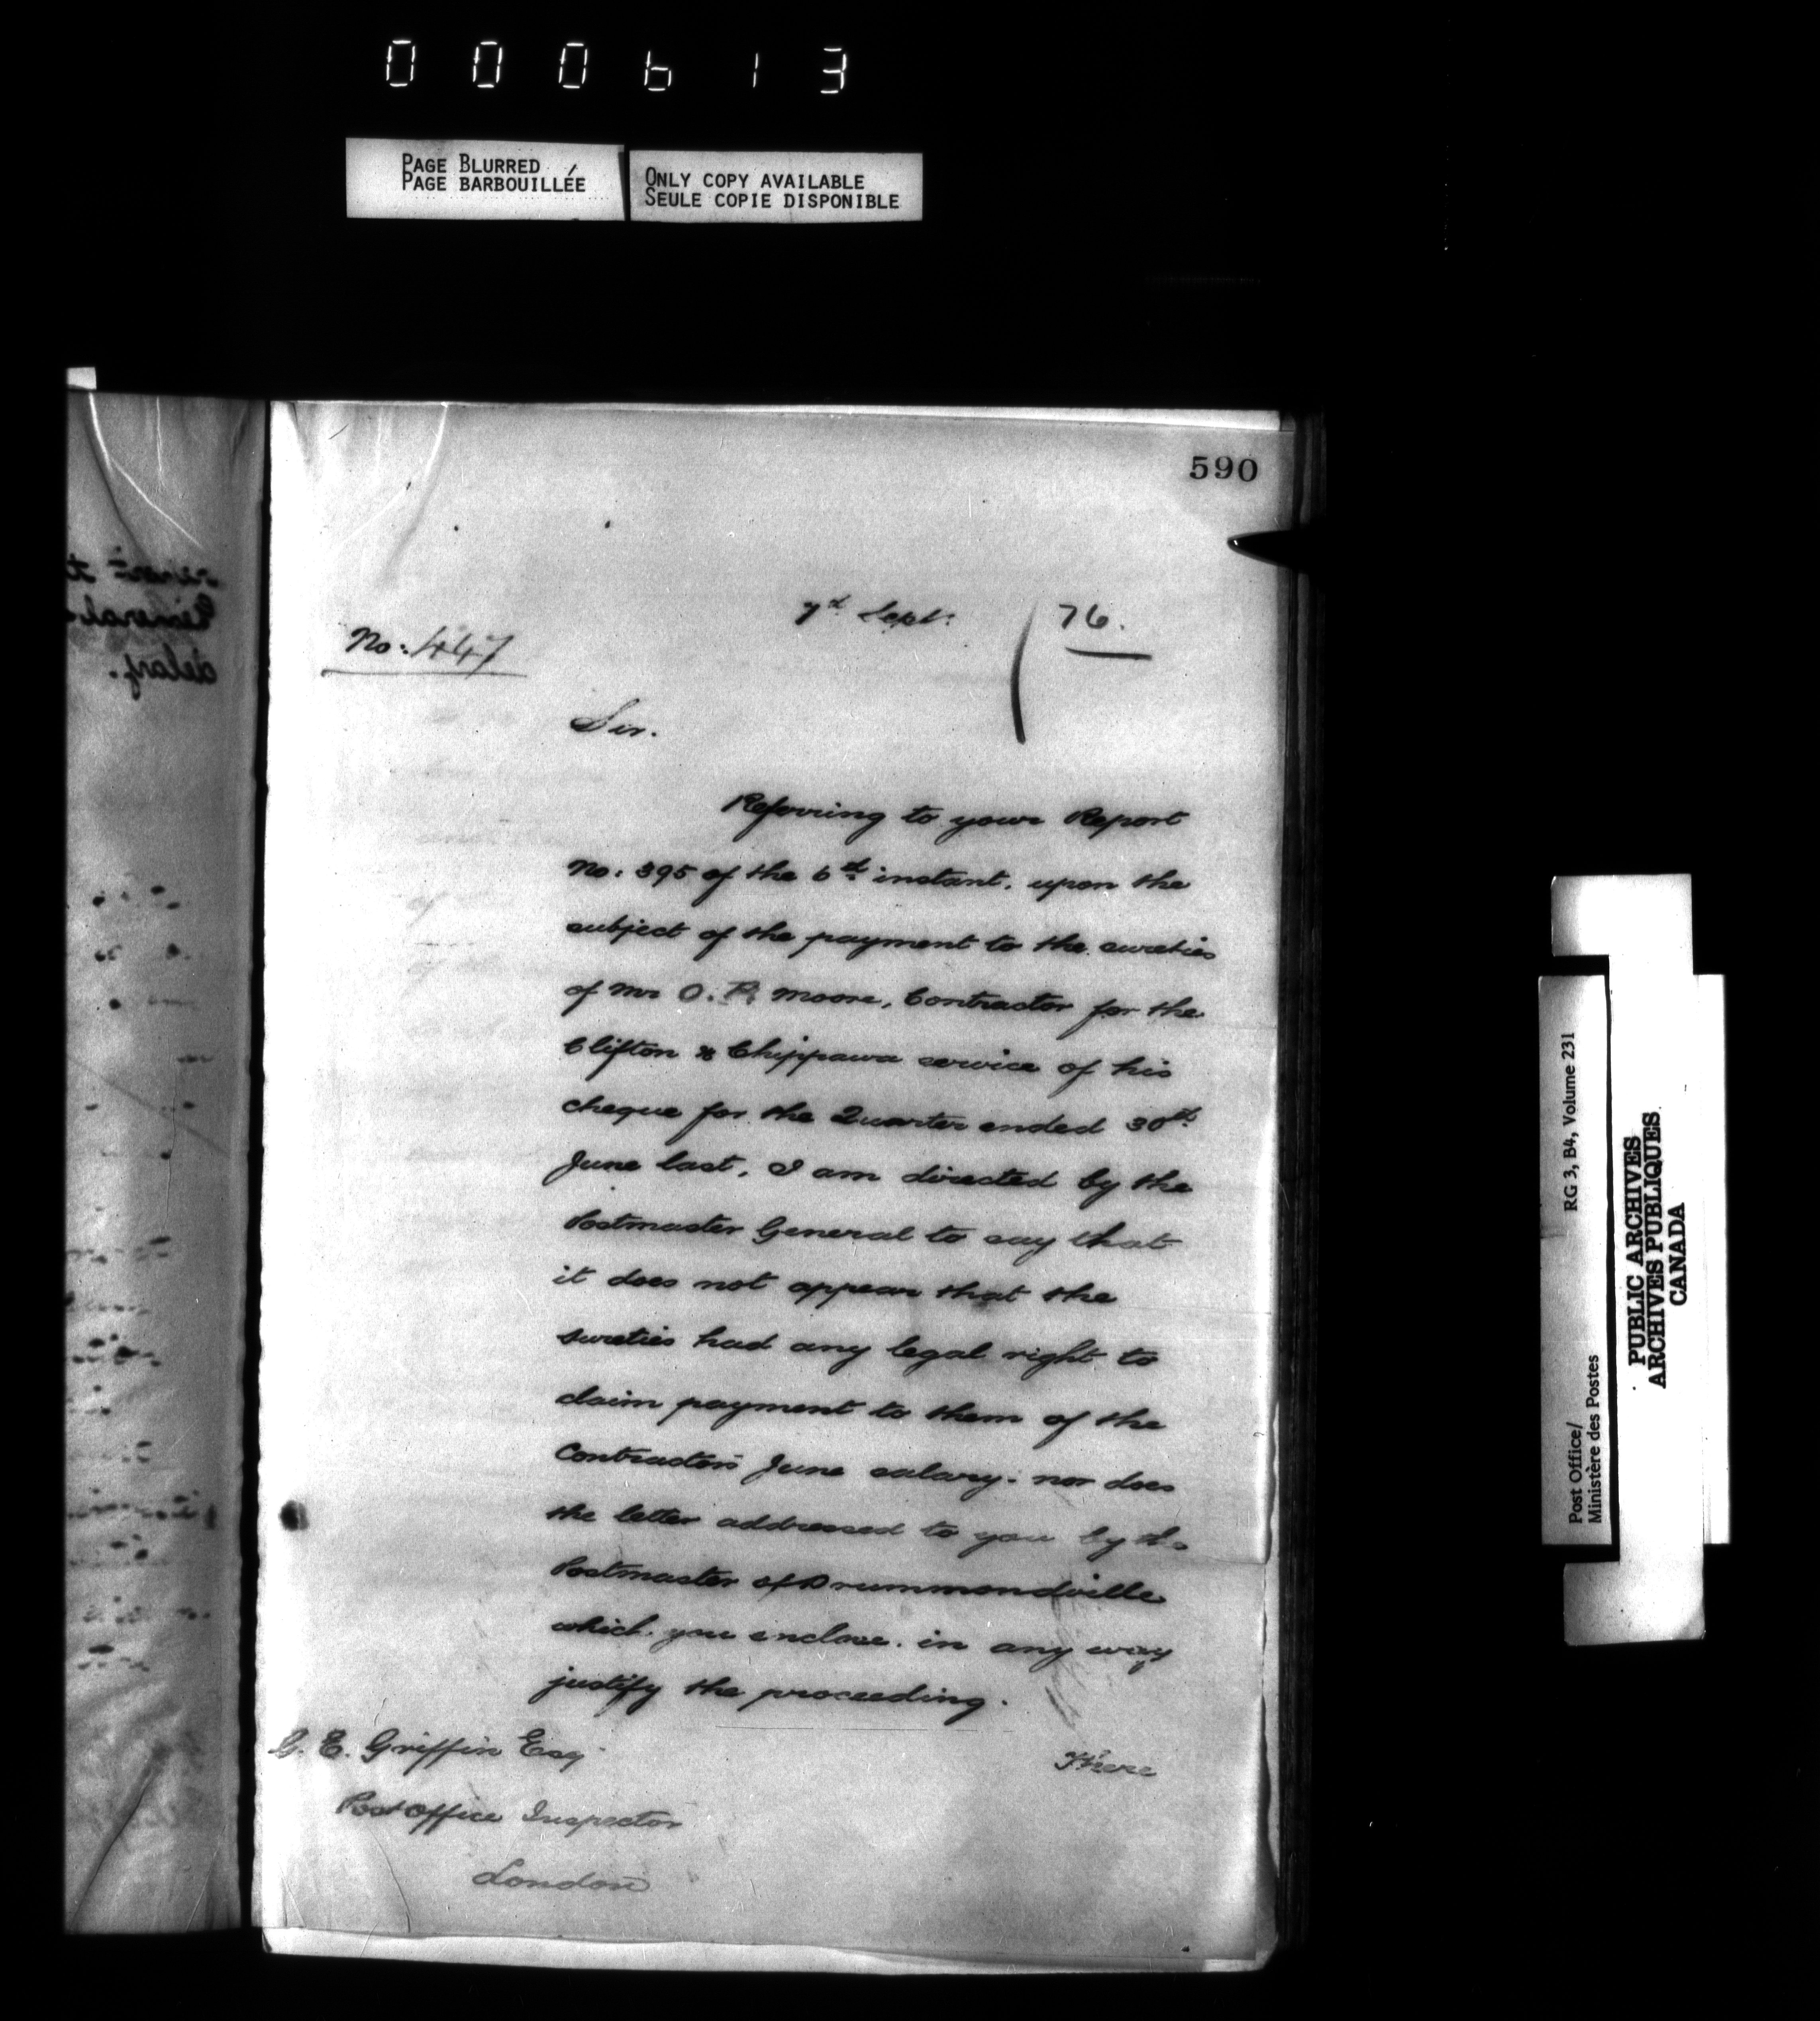 000613
PAGE BLURRED
PAGE BARBOUILLÉE
ONLY COPY AVAILABLE
SEULE COPIE DISPONIBLE
590
7th Sept. 76.
No: 447
Sir.
Referring to your Report
No: 395 of the 6th instant, upon the
subject of the payment to the sureties
of Mr O. P. Moore, Contractor for the
Clifton & Chippawa service of his
cheque for the Quarter ended 30th
June last, I am directed by the
Postmaster General to say that
it does not appear that the
sureties had any legal right to
claim payment to them of the
Contractor's June salary. nor does
the letter addressed to you by the
Postmaster of Drummondville
which you enclose. in any way
justify the proceeding.
There
G. E. Griffin Esq
Post Office Inspector
London
delay.
Post Office/
Ministère des Postes
RG 3, B4, Volume 231
PUBLIC ARCHIVES
ARCHIVES PUBLIQUES
CANADA